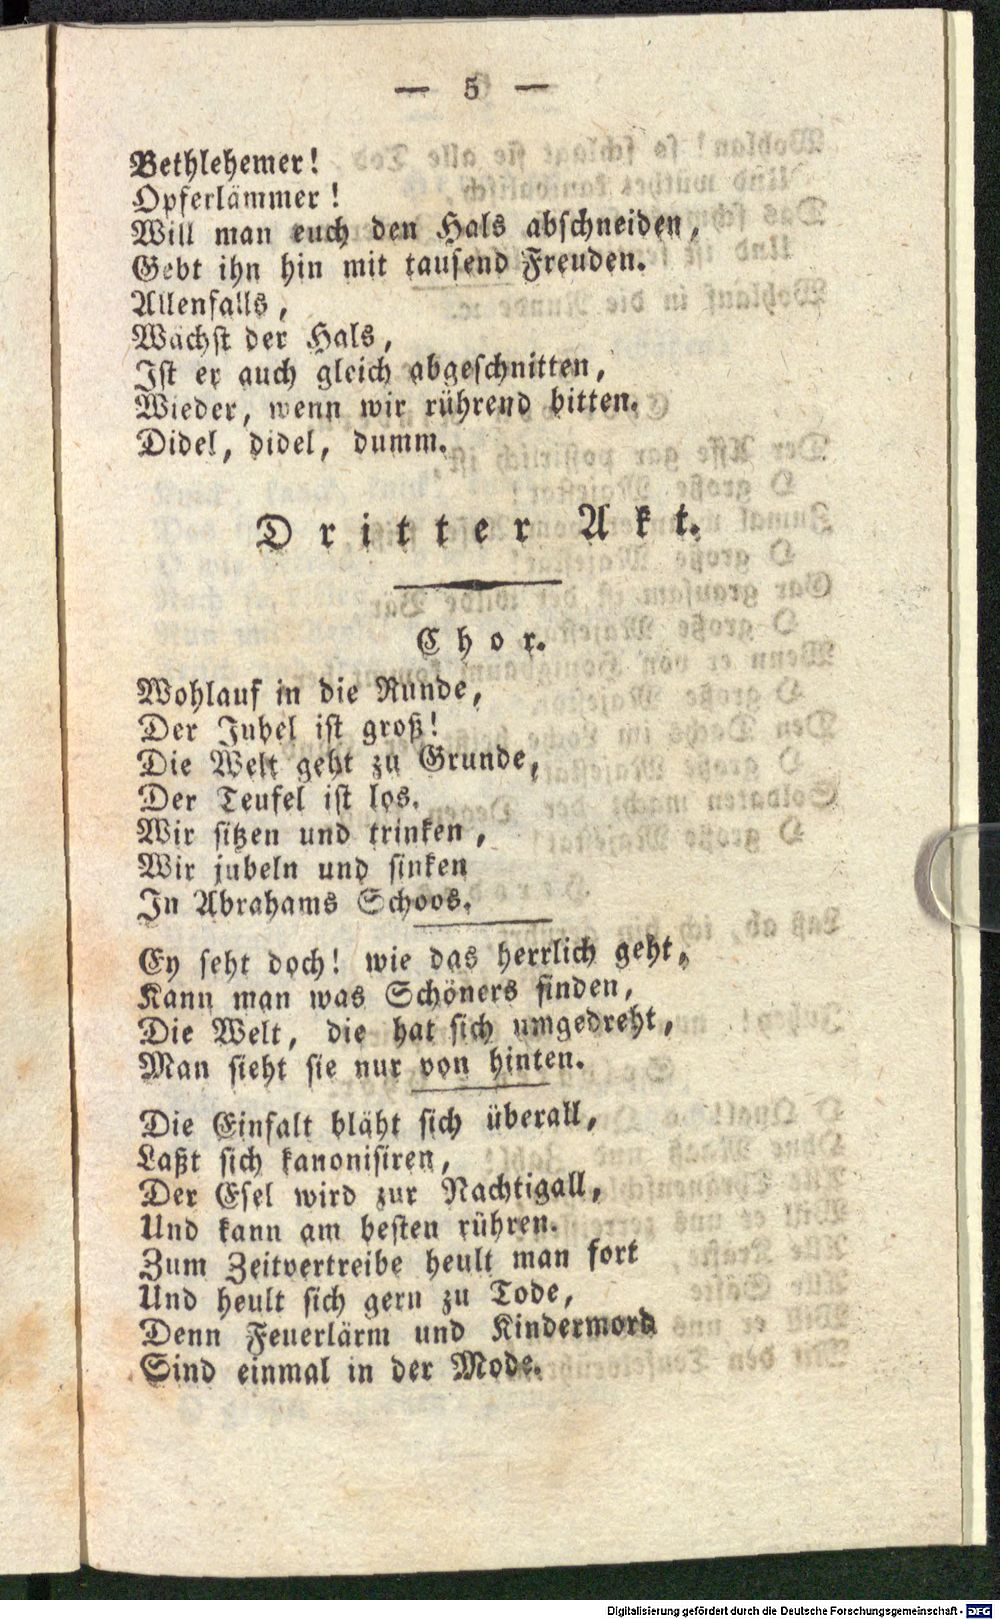 — 5 —
Bethlehemer!
Opferlämmer!
Will man euch den Hals abschneiden,
Gebt ihn hin mit tausend Freuden.
Allenfalls,
Wächst der Hals,
Ist er auch gleich abgeschnitten,
Wieder, wenn wir rührend bitten.
Didel, didel, dumm.
Dritter Akt.
Chor.
Wohlauf in die Runde,
Der Jubel ist groß!
Die Welt geht zu Grunde,
Der Teufel ist los.
Wir sitzen und trinken,
Wir jubeln und sinken
In Abrahams Schoos.
Ey seht doch! wie das herrlich geht,
Kann man was Schöners finden,
Die Welt, die hat sich umgedreht,
Man sieht sie nur von hinten.
Die Einfalt bläht sich überall,
Laßt sich kanonisiren,
Der Esel wird zur Nachtigall,
Und kann am besten rühren.
Zum Zeitvertreibe heult man fort
Und heult sich gern zu Tode,
Denn Feuerlärm und Kindermord
Sind einmal in der Mode.
Digitalisierung gefördert durch die Deutsche Forschungsgemeinschaft - DFG